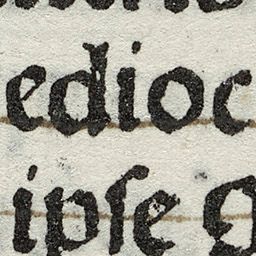 edioc
ipſe g